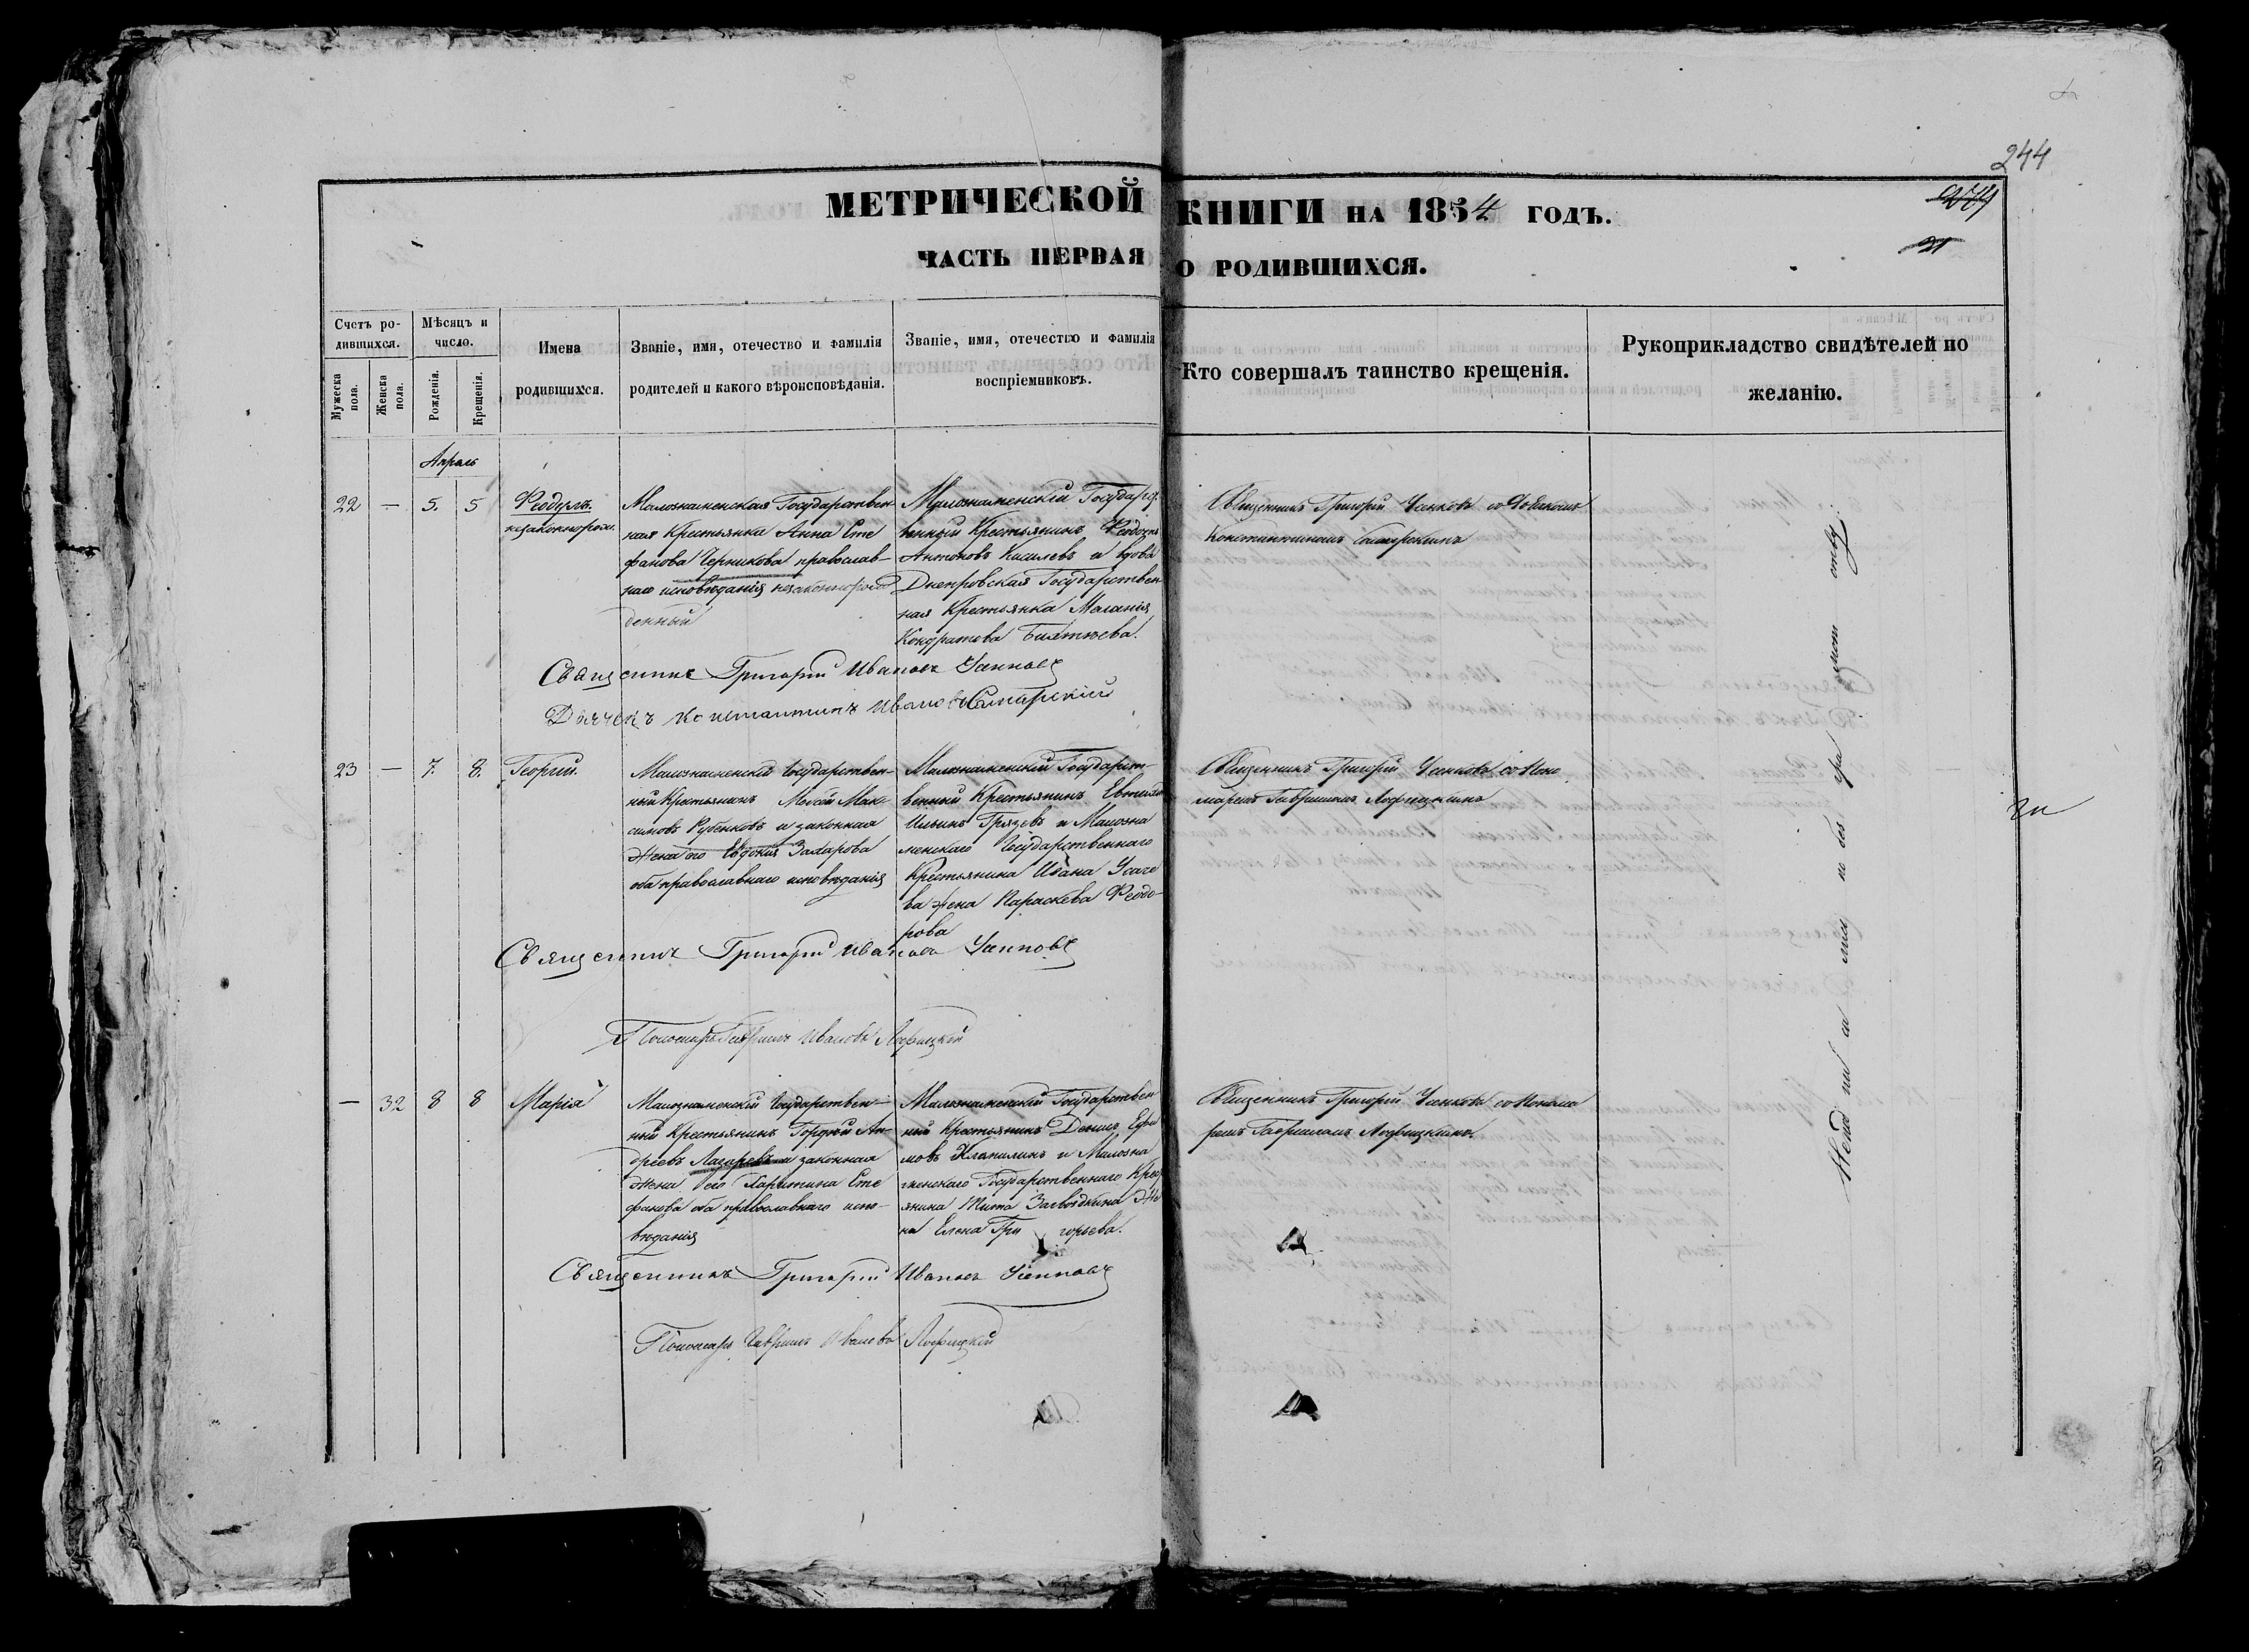 244
МЕТРИЧЕСКОЙ КНИГИ НА 1854 ГОДЪ.
ЧАСТЬ ПЕРВАЯ О РОДИВШИХСЯ.
Счетъ ро-
дившихся.
Мужеска пола.
Женска пола.
Мѣсяцъ и
число.
Рожденія.
Крещенія.
Имена
родившихся.
Званіе, имя, отечество и фамилія
родителей и какого вѣроисповѣданія.
Званіе, имя, отечество и фамилія
воспріемниковъ.
Кто совершалъ таинство крещенія.
Рукоприкладство свидѣтелей по
желанію.
Апрель
22 — 5. 5
Феодоръ.
незаконнорож.
Малознаменская Государствен-
ная Крестьянка Анна Сте
фанова Черникова православ-
наго исповѣданія незаконнорож
денный
Малознаменскій Государс.
твенный Крестьянинъ
Антоновъ Киселевъ и вдова
Днепровская Государствен
ная Крестьянка Меланія
Кондратова
Священникъ Григорій
Константиномъ Самарскимъ
Священникъ Григорій Ивановъ
Дьячекъ Константинъ Ивановъ Самарскій
23 — 7. 8.
Георгій.
Малознаменскій Государствен-
ный Крестьянинъ Моисей Мак-
симовъ Рубенковъ и законная
жена его Евдокія Захарова
оба православнаго исповѣданія
Малознаменскій Государст-
венный Крестьянинъ
Ильинъ Грязевъ и Малозна
менскаго Государственнаго
Крестьянина Ивана Усаче
ва жена Параскева Феодо-
рова
Священникъ Григорій со Поно
маремъ Гавріиломъ
Священникъ Григорій Ивановъ
Пономарь Гавріилъ Ивановъ
— 32 8 8
Марія
Малознаменскій Государствен-
ный Крестьянинъ Гордѣй Ан-
дреевъ Лазаревъ и законная
жена его Харитина Сте
фанова оба православнаго испо-
вѣданія
Малознаменскій Государствен
ный Крестьянинъ Денисъ Ефи
мовъ и Малозна
менскаго Государственнаго Крес
янина Тита Загвоздкина же
на Елена Григорьева.
Священникъ Григорій со Понома
ремъ Гавріиломъ
Священникъ Григорій Ивановъ
Пономарь Гавріилъ Ивановъ